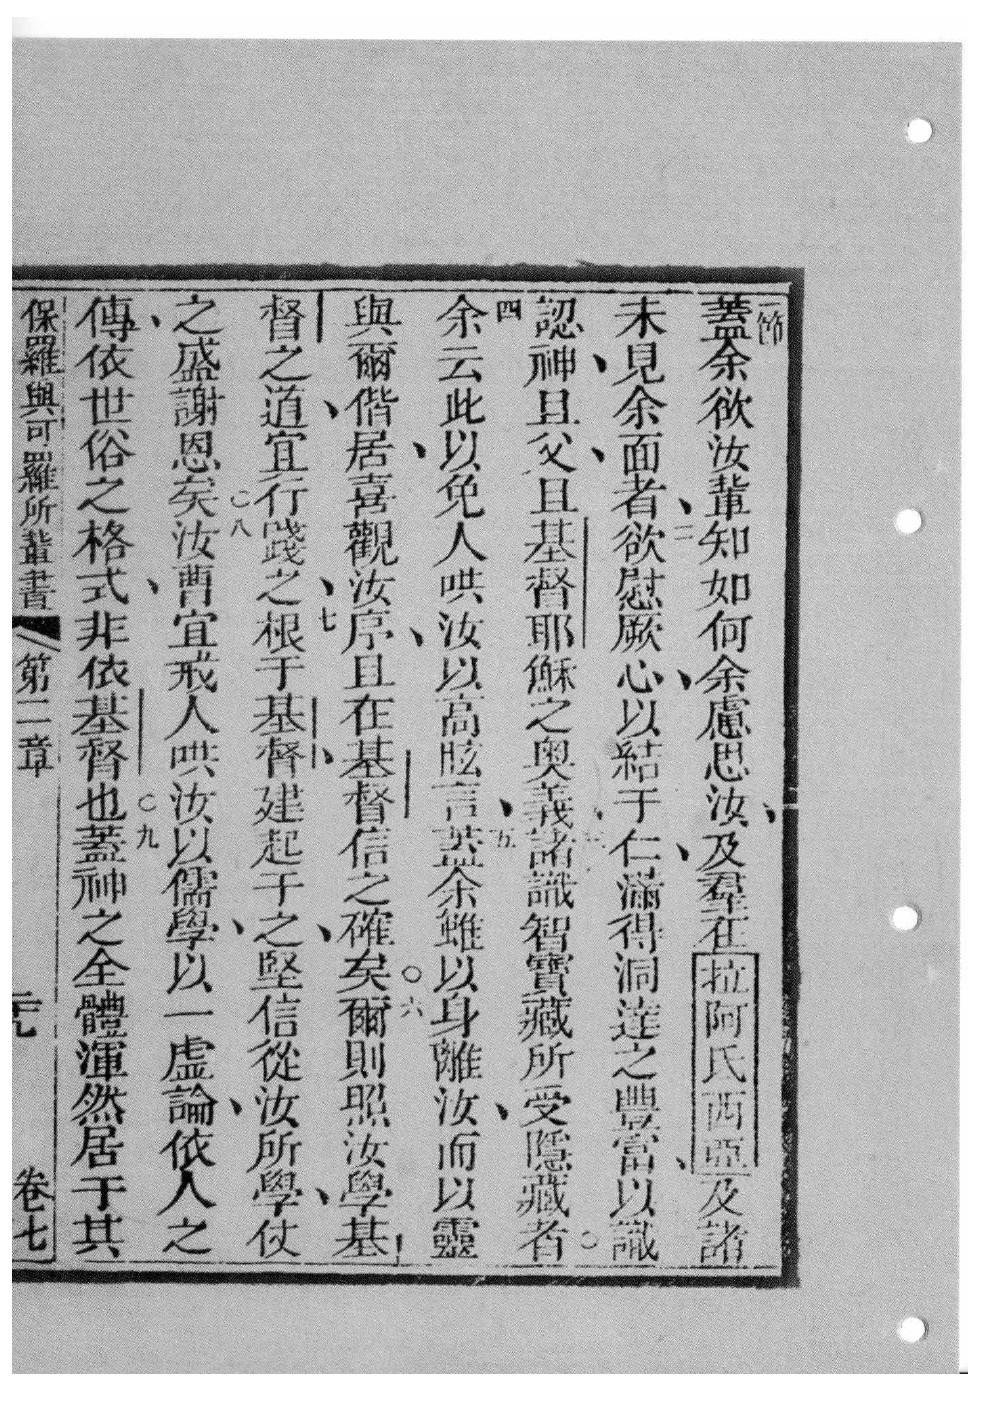 一節
蓋余欲汝軰知如何余慮思汝、及羣在拉阿氏西亞及諸
未見余面者、二欲慰厥心、以結于仁、滿得洞達之豐當、以識
認神、且父、且基督耶穌之奥義、三諸識智寶藏所受隱藏者○
四余云此、以免人哄汝以高眩言、五蓋余雖以身離汝、而以靈
與爾偕居、喜觀汝序、且在基督信之確矣○六爾則照汝學基
督之道、宜行踐之、七根于基督、建起于之、堅信從汝所學、仗
之盛謝恩矣○八汝曹宜戒人哄汝以儒學、以一虛論、依人之
傳、依世俗之格式、非依基督也○九蓋神之全體渾然居于其
保羅與可羅所軰書 第二章 卷七